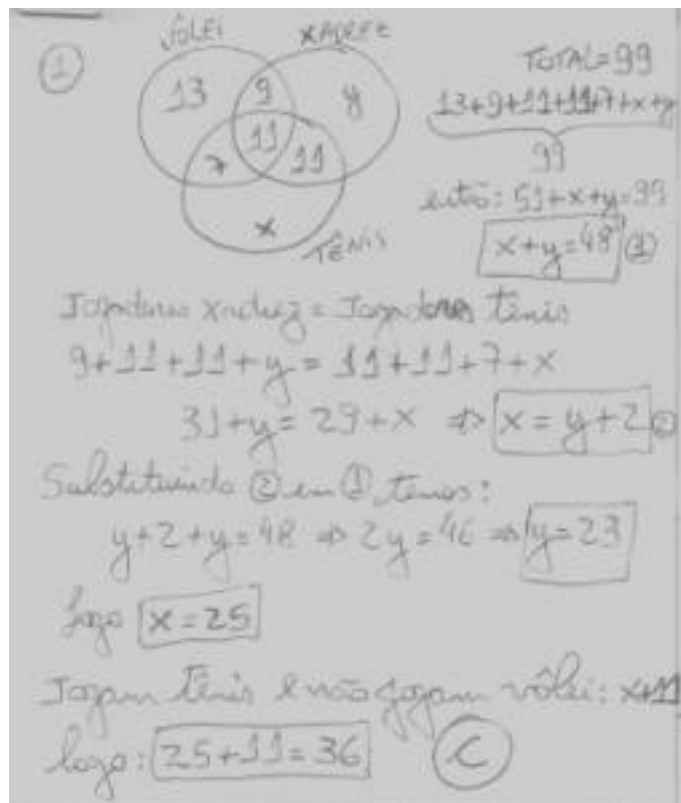 1
VÔLEI
XADREZ
13 9 y
11
7 11
x
TÊNIS
TOTAL=99
13+9+11+11+7+x+y
99
então: 51+x+y=99
x+y=48 ①
Jogadores xadrez = Jogadores tênis
9+11+11+y = 11+11+7+x
31+y = 29+x ⇒ x = y+2 ②
Substituindo ② em ① temos:
y+2+y=48 ⇒ 2y=46 ⇒ y=23
Logo x=25
Jogam tênis e não jogam vôlei: x+11
logo: 25+11=36 C